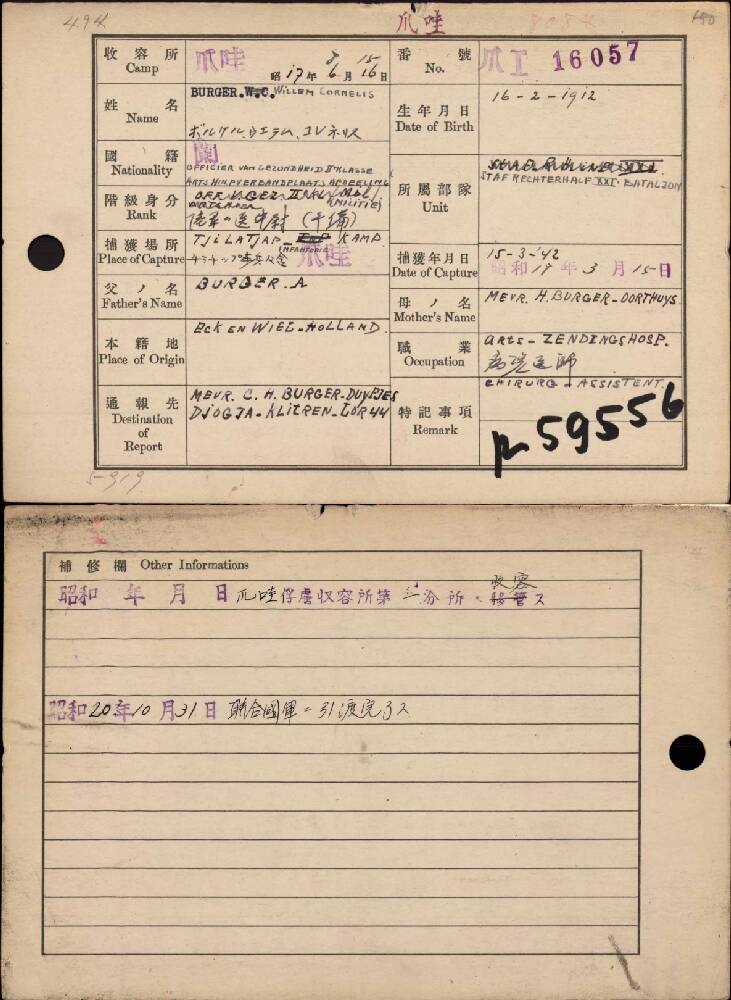 494
爪哇
収容所
Camp
爪哇
昭17年 8 15
6月16日
番號
No.
爪I 16057
姓名
Name
BURGER. W.C. WILLEM CORNELIS
生年月日
Date of Birth
16-2-1912
國籍
Nationality
蘭
OFFICIER VAN GEZONDHEID II KLASSE
ARTS HULPVERBANDPLAATS AFDEELING
階級身分
Rank
(千備)
所属部隊
Unit
STAF RECHTERHALF XXI BATALJON
捕獲場所
Place of Capture
TJILATJAP- KAMP
INFANTERIE
爪哇
捕獲年月日
Date of Capture
15-3-'42
昭和17年3月15日
父ノ名
Father's Name
BURGER. A
母ノ名
Mother's Name
MEVR. H. BURGER-OORTHUYS
本籍地
Place of Origin
ECK EN WIEL-HOLLAND
職業
Occupation
ARTS-ZENDINGSHOSP.
病院医師
CHIRURG-ASSISTENT.
通報先
Destination
of
Report
MEVR. C. H. BURGER-DUYFJES
DJOGJA-KLITREN-LOR 44
特記事項
Remark
59556
5-919
補修欄 Other Informations
収容
昭和 年 月 日 爪哇俘虜収容所第三分所ニ移管ス
昭和20年10月31日 聯合國軍ニ引渡完了ス